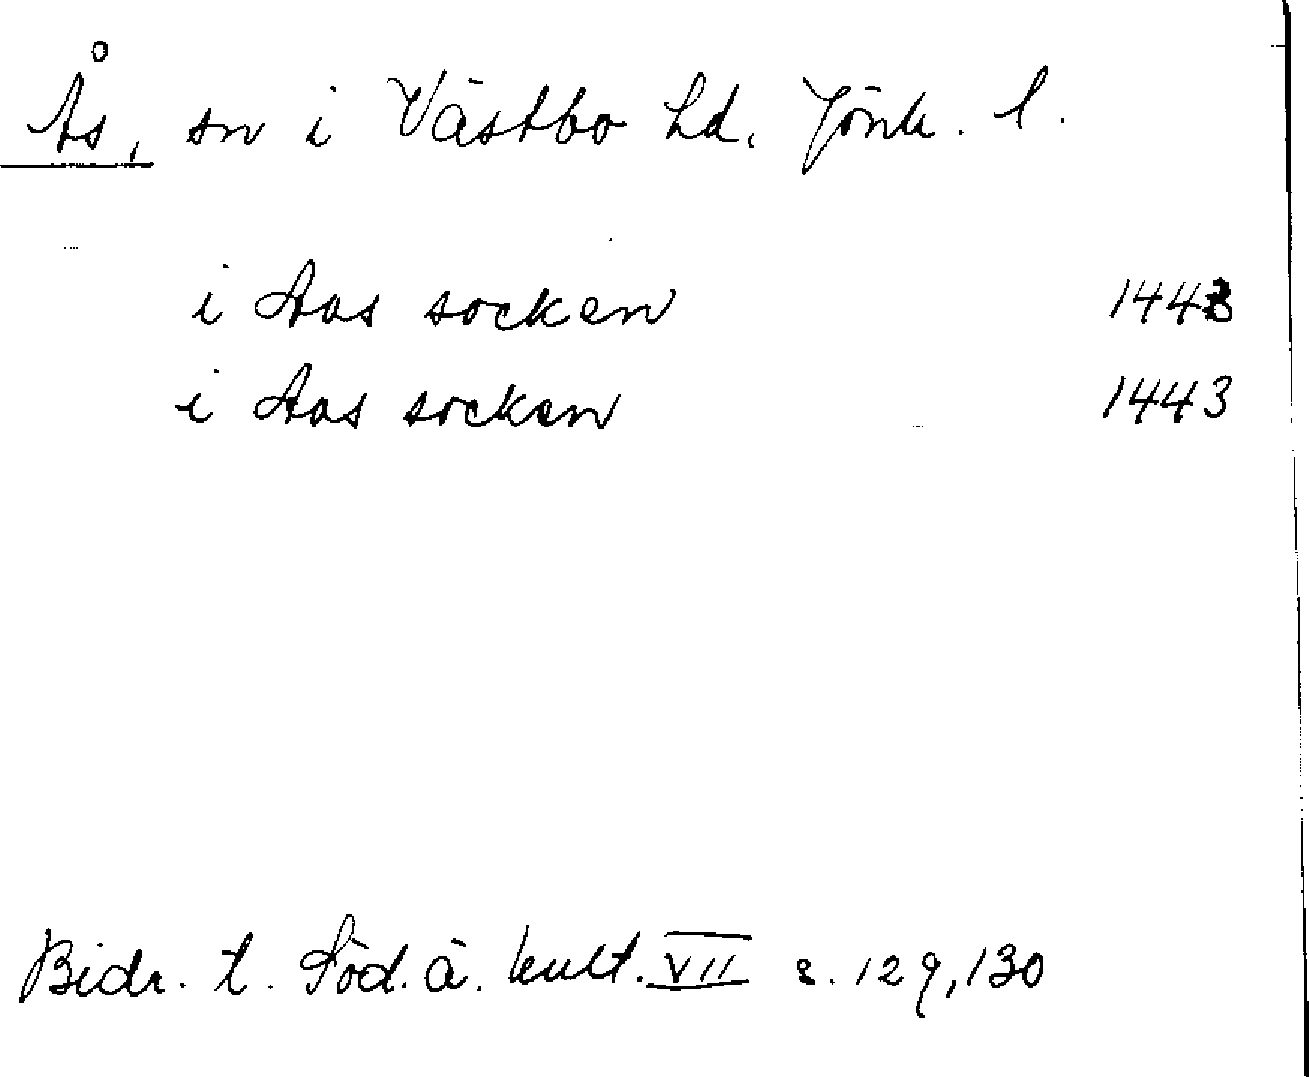 Ås, sn i Västbo hd. Jönk. l.
i Aas socken 1443
i Aas socken 1443
Bidr. t. Söd. ä. kult. VII s. 129, 130